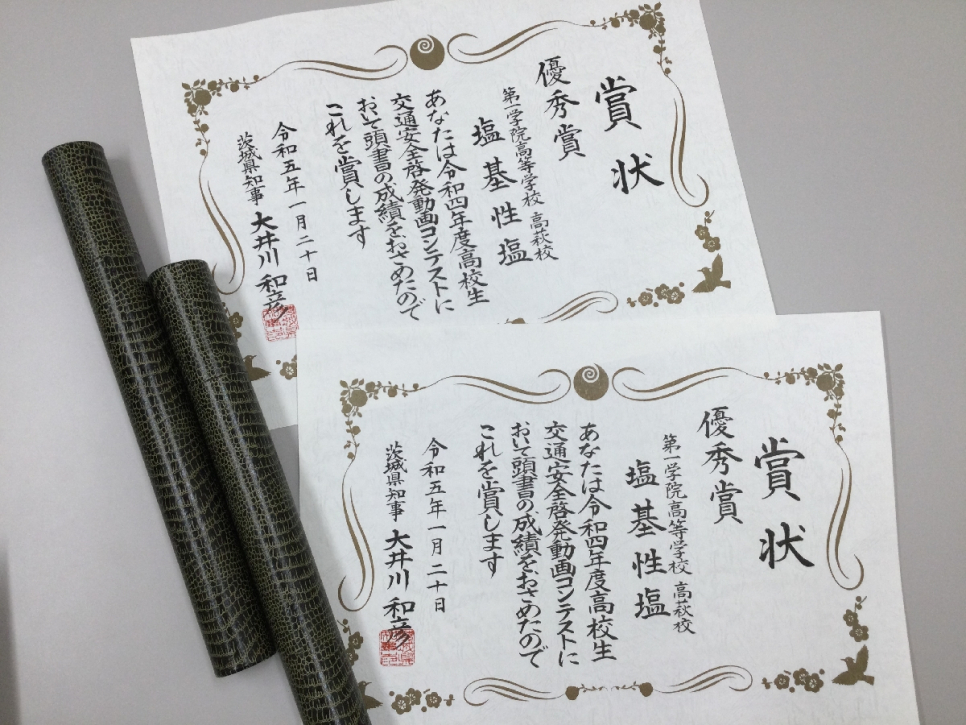 賞状
優秀賞
第一学院高等学校 高萩校
塩基性塩
あなたは令和四年度高校生
交通安全啓発動画コンテストに
おいて頭書の成績をおさめたので
これを賞します
令和五年一月二十日
茨城県知事 大井川 和彦
賞状
優秀賞
第一学院高等学校 高萩校
塩基性塩
あなたは令和四年度高校生
交通安全啓発動画コンテストに
おいて頭書の成績をおさめたので
これを賞します
令和五年一月二十日
茨城県知事 大井川 和彦